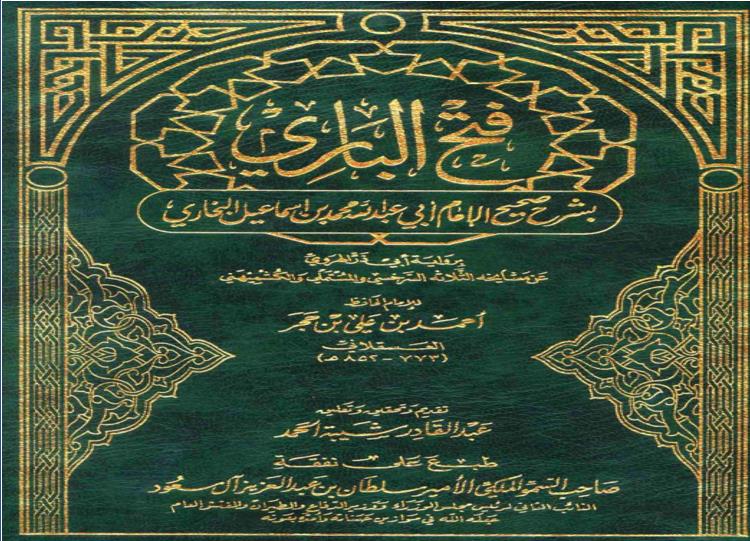 فتح الباري
بشرح صحيح الإمام أبي عبد الله محمد بن إسماعيل البخاري
برواية أبي ذر الهروي
عن مشايخه الثلاثة السرخسي والمستملي والكشميهني
للإمام الحافظ
أحمد بن علي بن حجر
العسقلاني
(٧٧٣ - ٨٥٢ هـ)
تقديم وتحقيق وتعليق
عبد القادر شيبة الحمد
طبع على نفقة
صاحب السمو الملكي الأمير سلطان بن عبد العزيز آل سعود
النائب الثاني لرئيس مجلس الوزراء ووزير الدفاع والطيران والمفتش العام
الله في موازين حسناته